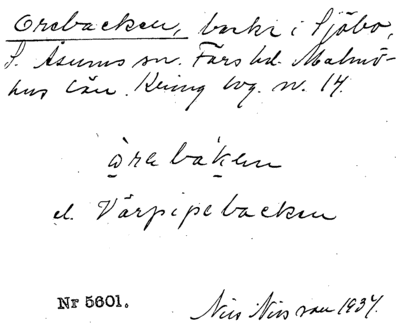 Orebacken, backe i Sjöbo,
S. Åsums sn. Färs hd. Malmö-
hus län. Kring byg. nr. 14.
àrebàkenn
el. Värpipebacken
Nr 5601.
Nils Nilsson 1937.